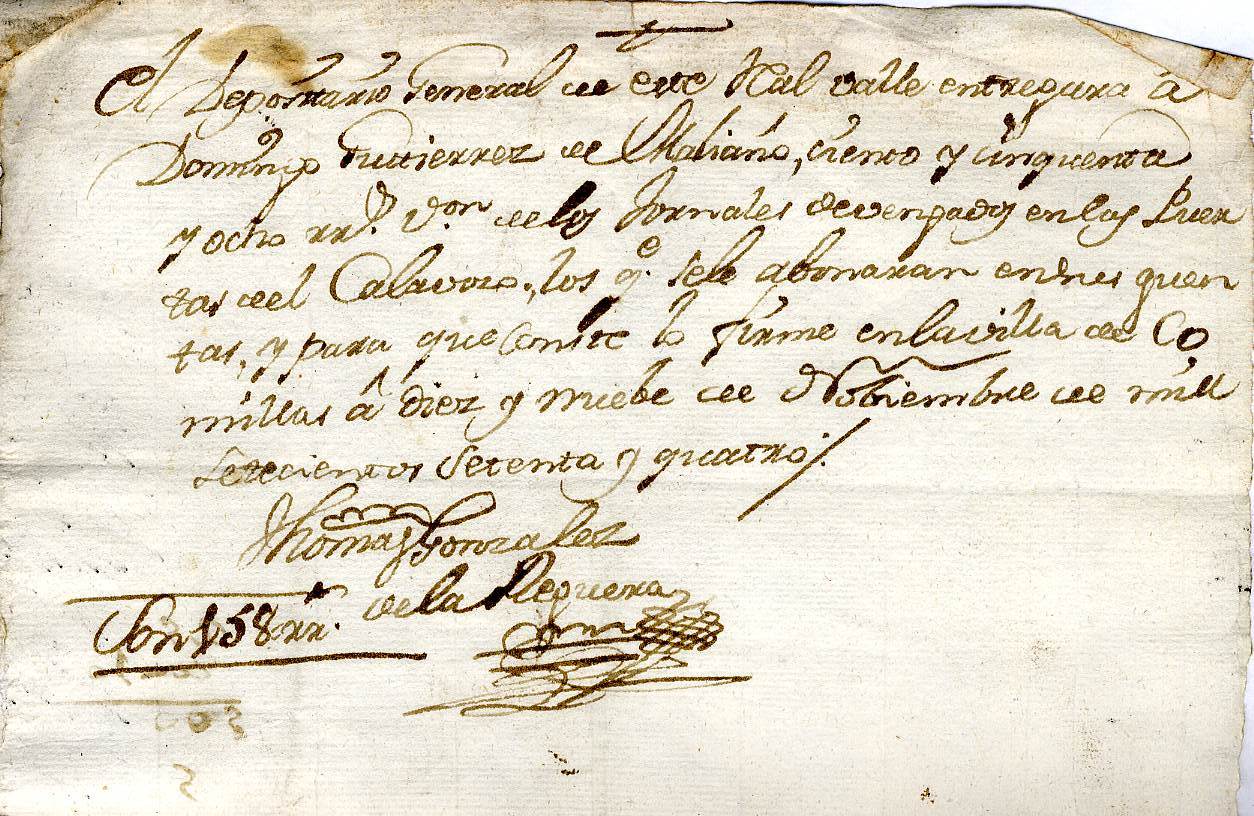 El Depositario General de este Real valle entregara â
Domingo Gutierrez de Maliaño, ciento y cinquenta
y ocho rr.s v.on de los Jornales devengados en las Puer
tas de el Calavozo, los q.e sele abonaran en sus quen
tas, y para que conste lo firme en la villa de Co,
millas â diez y nuebe de Nobiembre de mill
setecientos setenta y quatro.
Thomas Gonzalez
de la Reguera
Son 158 rr.s